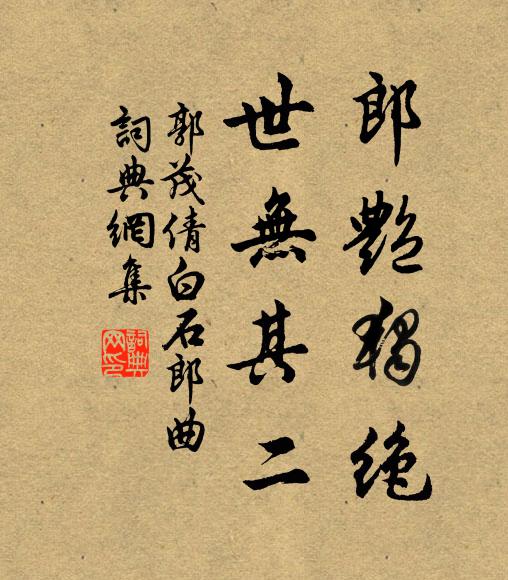 郎艷獨絶
世無其二
郭茂倩白石郎曲
詞典網集
詞典网印